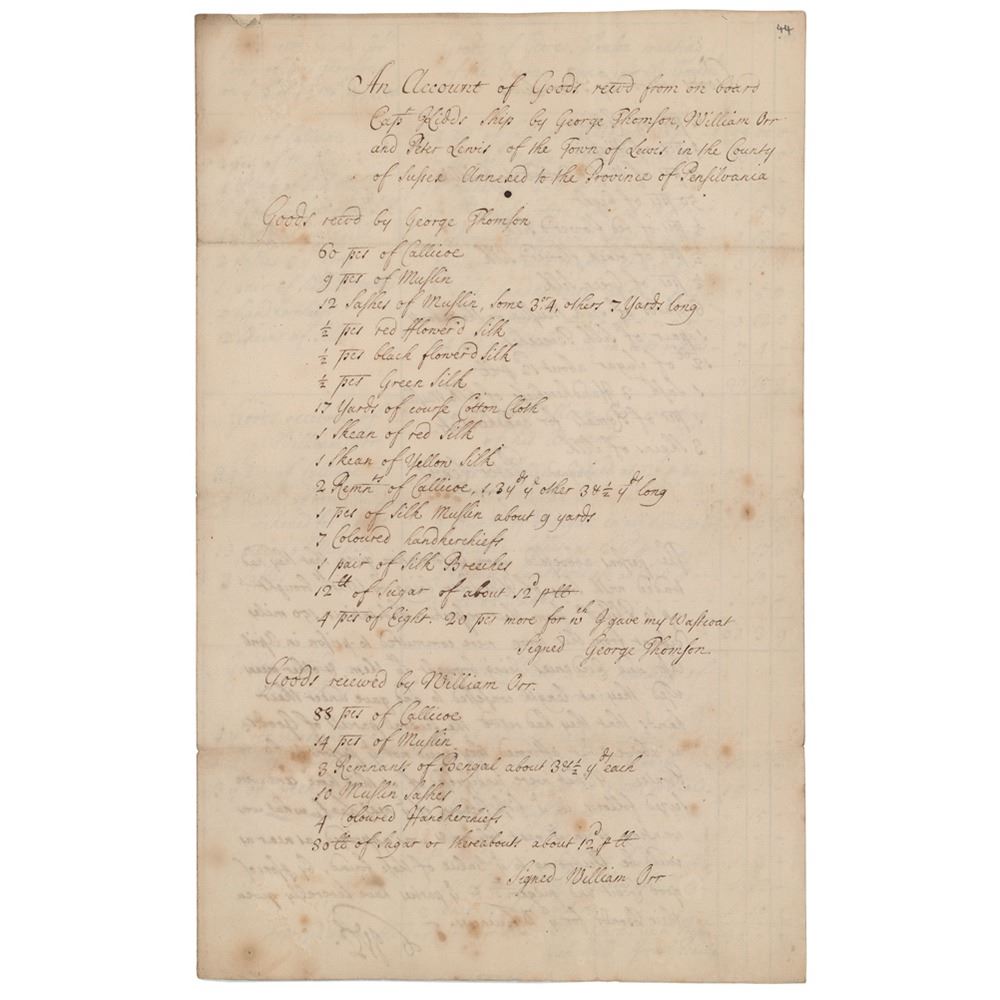 44
An Account of Goods recvd from on board
Capt Kidds Ship by George Thomson, William Orr
and Peter Lewis of the Town of Lewis in the County
of Sussex Annexed to the Province of Pensilvania
Goods recvd by George Thomson
60 pcs of Callicoe
9 pcs of Muslin
12 Sashes of Muslin, some 3 or 4, others 7 Yards long
½ pcs red flower'd Silk
½ pcs black flower'd Silk
½ pcs Green Silk
17 Yards of course Cotton Cloth
1 Skean of red Silk
1 Skean of Yellow Silk
2 Remnts of Callicoe, 1, 3 yds ye other 3 & ½ yds long
1 pcs of Silk Muslin about 9 yards
7 Coloured handkerchiefs
1 pair of Silk Breeches
12 tt of Sugar of about 12d p tt
4 pcs of Eight. 20 pcs more for wch I gave my Wastcoat
Signed George Thomson
Goods received by William Orr.
88 pcs of Callicoe
14 pcs of Muslin
3 Remnants of Bengal about 3 & ½ yds each
10 Muslin Sashes
4 Coloured Handkerchiefs
30 tt of Sugar or thereabouts about 12d p tt
Signed William Orr